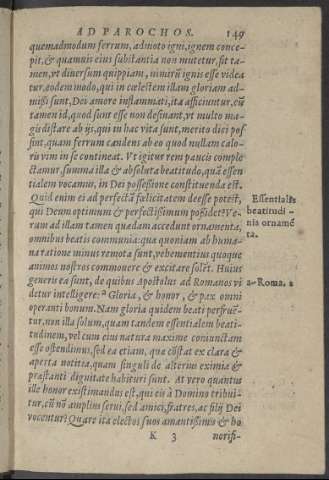 AD PAROCHOS. 149
quemadmodum ferrum, admoto igni, ignem conce-
pit, & quamuis eius substantia non mutetur, fit ta-
men, vt diuersum quippiam, nimirũ ignis esse videa
tur, eodem modo, qui in cœlestem illam gloriam ad-
missi sunt, Dei amore inflammati, ita afficiuntur, cũ
tamen id, quod sunt esse non desinant, vt multo ma-
gis distare ab ijs, qui in hac vita sunt, merito dici pos
sint, quam ferrum candens ab eo quod nullam calo-
ris vim in se contineat. Vt igitur rem paucis comple
ctamur, summa illa & absoluta beatitudo, quã essen
tialem vocamus, in Dei possessione constituenda est.
Quid enim ei ad perfectã fœlicitatem deesse potest,
qui Deum optimum & perfectissimum possidet? Ve-
rum ad illam tamen quædam accedunt ornamenta,
omnibus beatis communia: quæ quoniam ab huma-
na ratione minus remota sunt, vehementius quoque
animos nostros commouere & excitare solẽt. Huius
generis ea sunt, de quibus Apostolus ad Romanos vi
detur intelligere: a Gloria, & honor, & pax omni
operanti bonum. Nam gloria quidem beati perfruẽ-
tur, non illa solum, quam tandem essentialem beati-
tudinem, vel cum eius natura maxime coniunctam
esse ostendimus, sed ea etiam, quæ cõstat ex clara &
aperta notitia, quam singuli de alterius eximia &
præstanti dignitate habituri sunt. At vero quantus
ille honor existimandus est, qui eis à Domino tribui-
tur, cũ nõ amplius serui, sed amici, fratres, ac filij Dei
vocentur? Quare ita electos suos amantissimis & ho
K 3 norifi-
Essentialis
beatitudi-
nis ornamẽ
ta.
a-Roma. 2